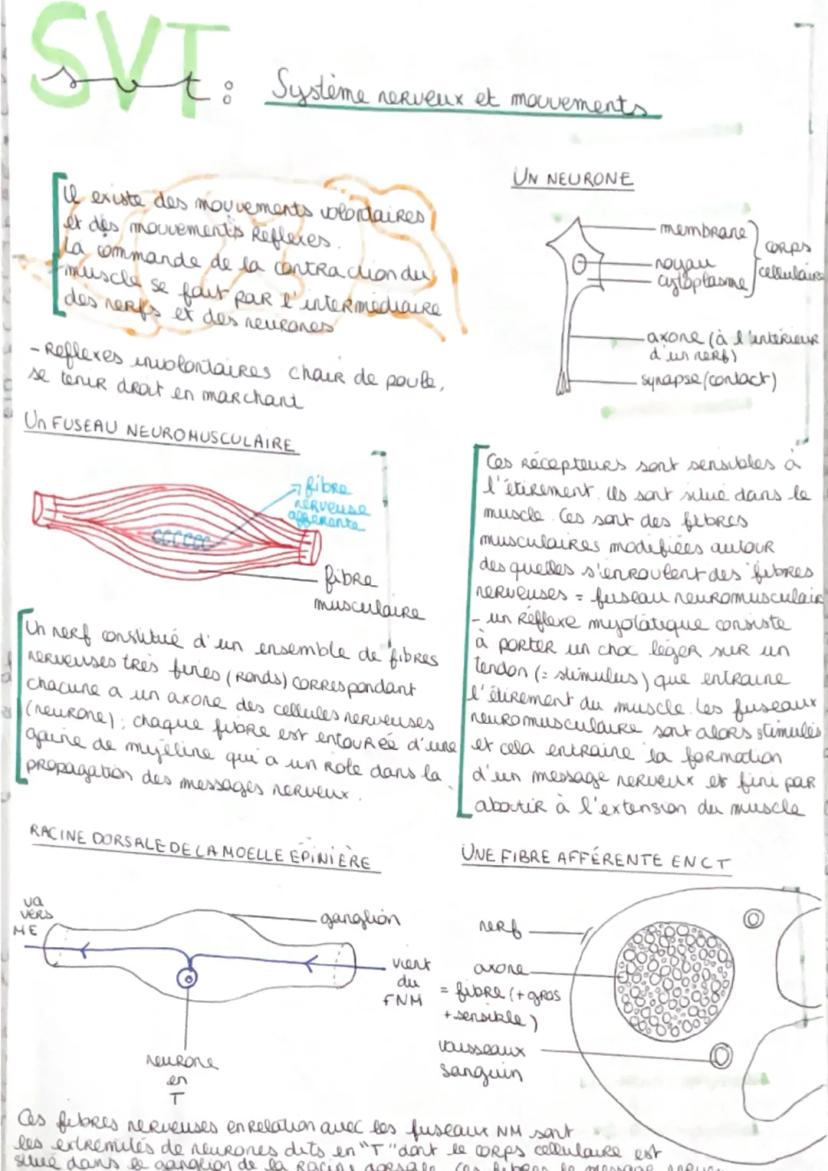 SVT
svt : Système nerveux et mouvements
Il existe des mouvements volontaires
et des mouvements Reflexes.
La commande de la contraction du
muscle se fait par l'intermédiaire
des nerfs et des neurones
- Reflexes involontaires chair de poule,
se tenir droit en marchant
UN NEURONE
membrane
noyau
cytoplasme
corps
cellulaire
axone (à l'intérieur
d'un nerf)
synapse (contact)
UN FUSEAU NEUROMUSCULAIRE
fibre
nerveuse
afférente
fibre
musculaire
Un nerf constitué d'un ensemble de fibres
nerveuses très fines (ronds) correspondant
chacune a un axone des cellules nerveuses
(neurone) ; chaque fibre est entourée d'une
gaine de myéline qui a un role dans la
propagation des messages nerveux.
Ces récepteurs sont sensibles à
l'étirement. Ils sont situé dans le
muscle. Ces sont des fibres
musculaires modifiées autour
des quelles s'enroulent des fibres
nerveuses = fuseau neuromusculair
- un réflexe myotatique consiste
à porter un choc léger sur un
tendon (= stimulus) que entraine
l'étirement du muscle. Les fuseaux
neuromusculaire sont alors stimulés
et cela entraine la formation
d'un message nerveux et fini par
aboutir à l'extension du muscle
RACINE DORSALE DE LA MOELLE ÉPINIÈRE
va
vers
ME
ganglion
vient
du
FNM
neurone
en
T
UNE FIBRE AFFÉRENTE EN CT
nerf
axone
= fibre (+ gros
+ sensible)
vaisseaux
sanguin
Ces fibres nerveuses en relation avec les fuseaux NM sont
les extrémités de neurones dits en "T" dont le corps cellulaire est
situé dans le ganglion de la racine dorsale.